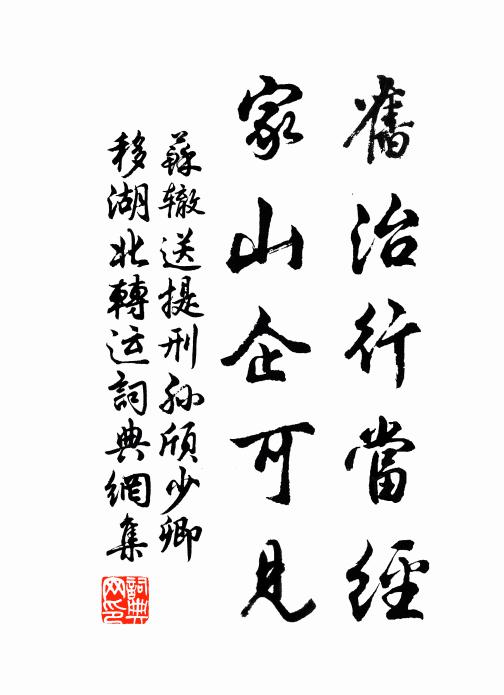 舊治行當經
家山企可見
蘇辙送提刑孙頎少卿
移湖北轉运詞典網集
詞典網印